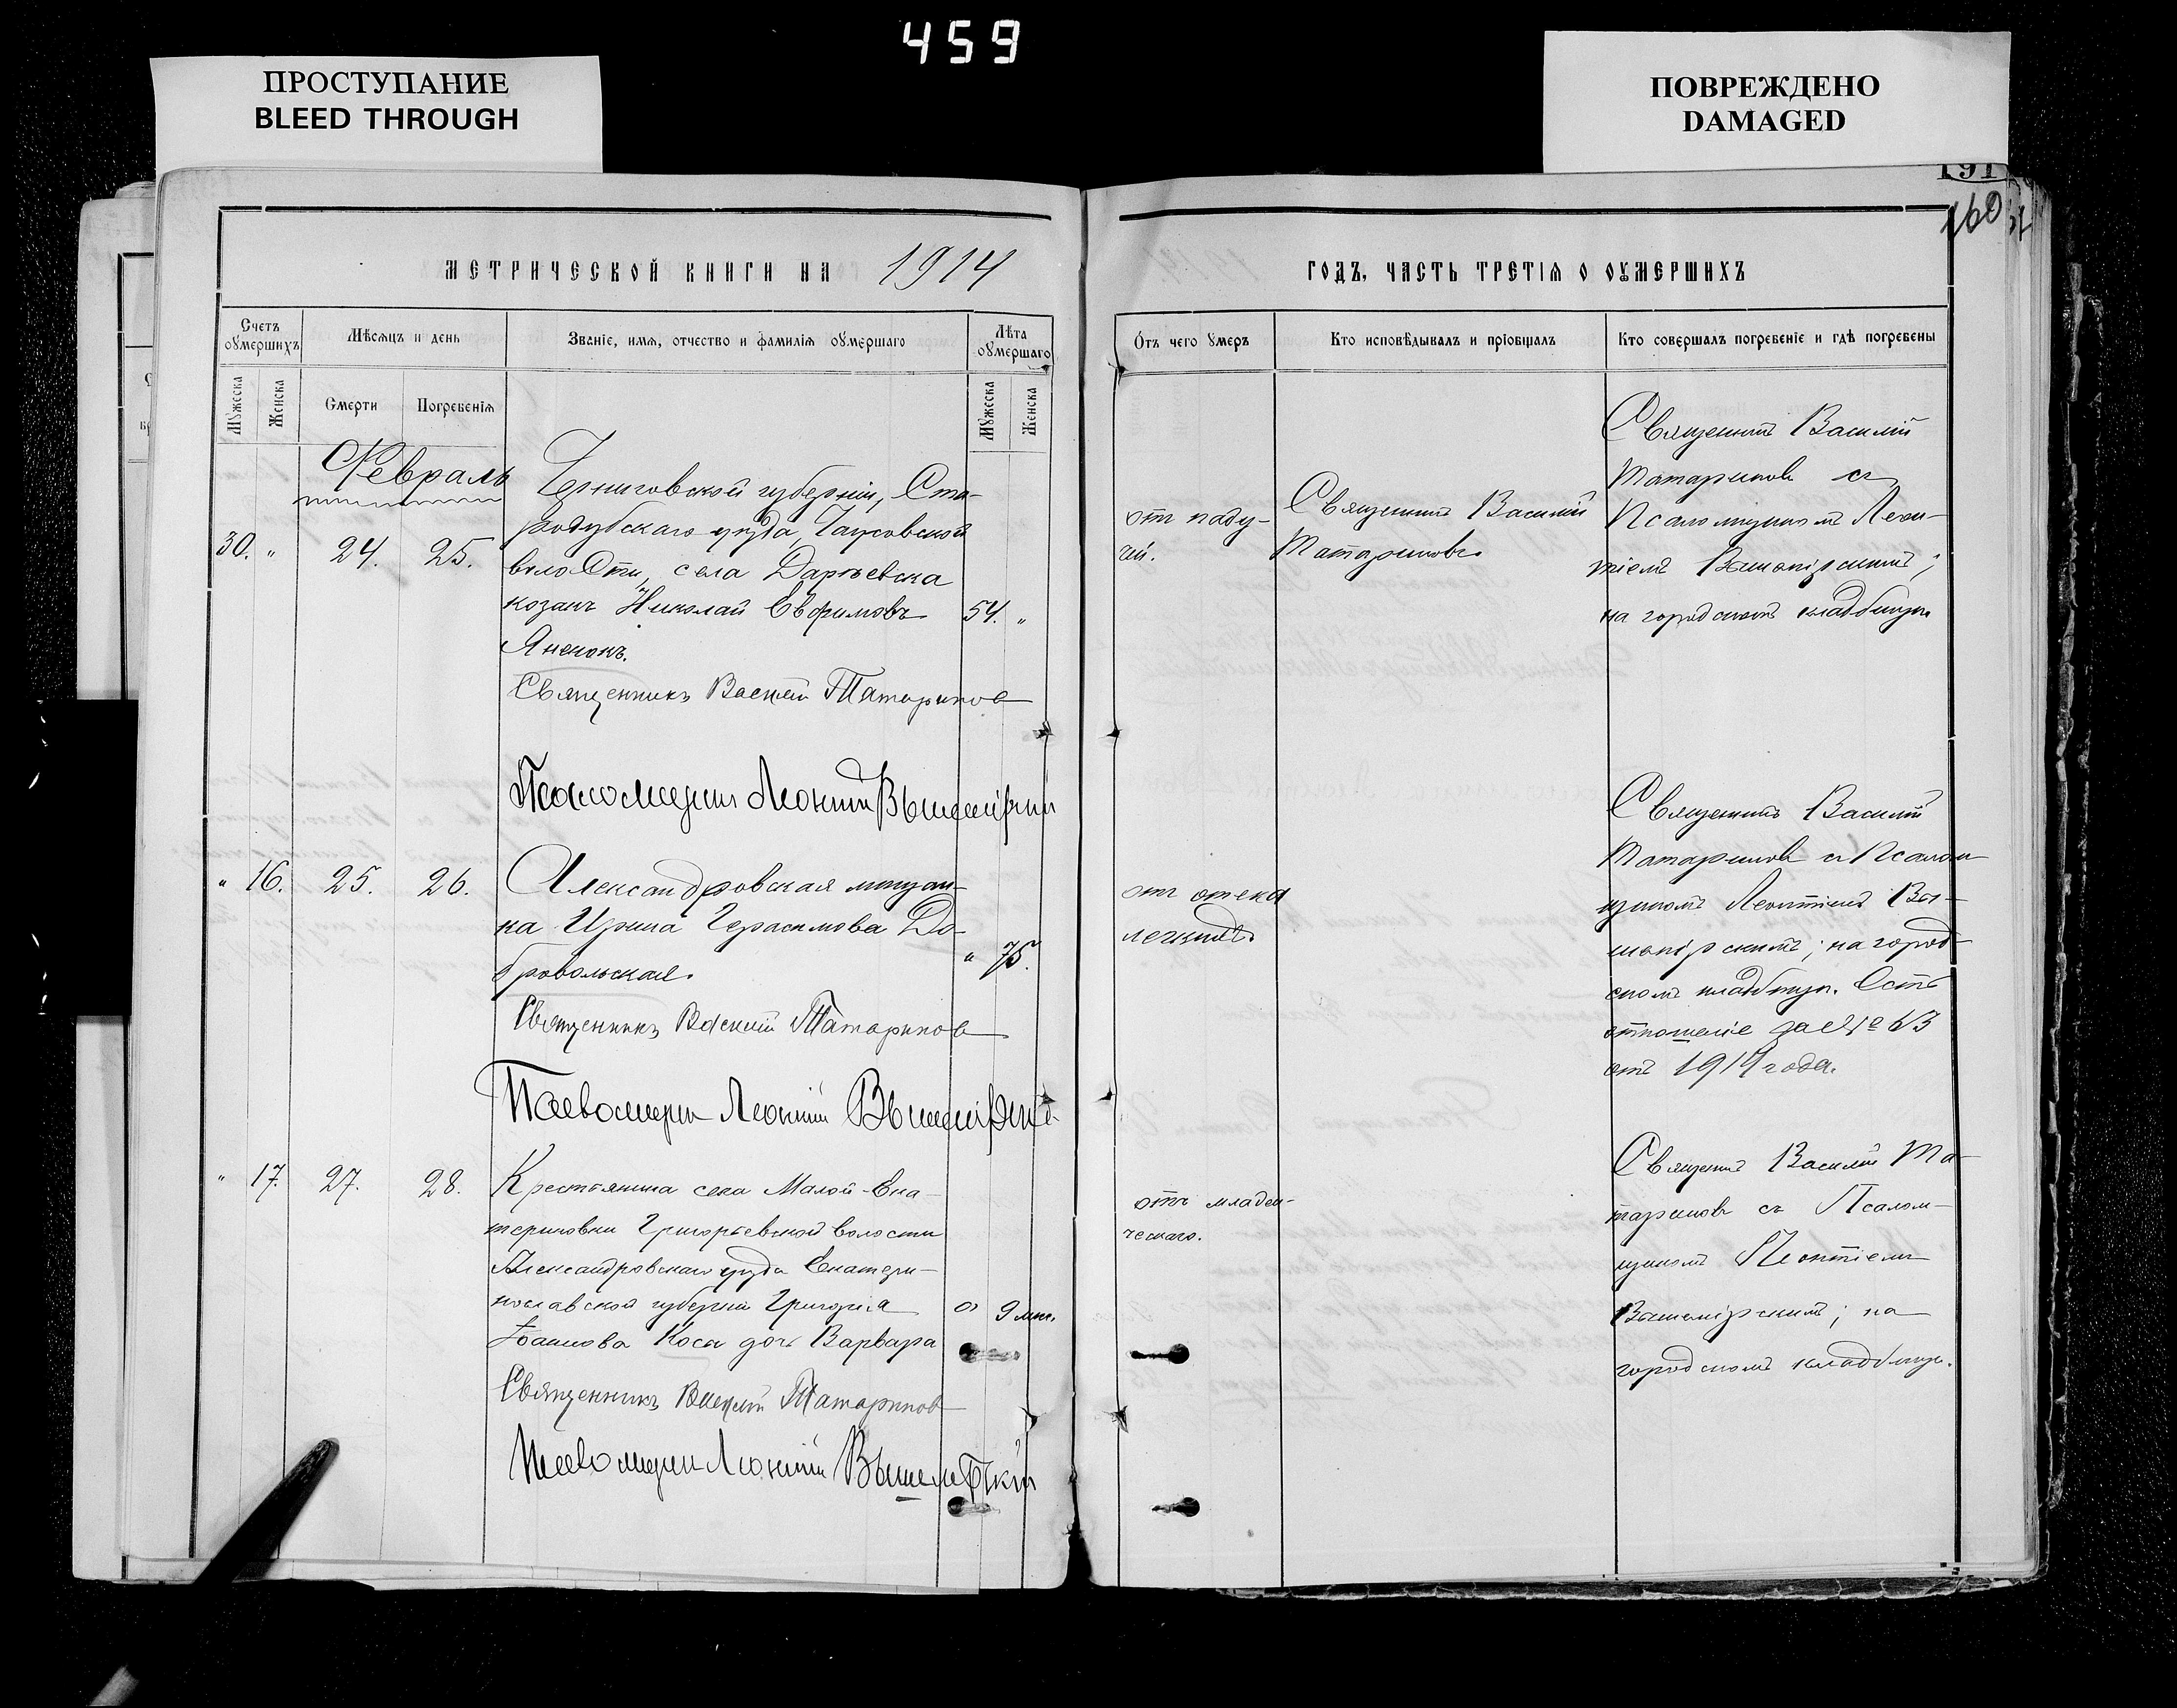 459
ПРОСТУПАНИЕ
BLEED THROUGH
ПОВРЕЖДЕНО
DAMAGED
191
160
МЕТРИЧЕСКОЙ КНИГИ НА 1914
Счетъ оумершихъ
Мѣсяцъ и день
Званіе, имя, отчество и фамилія оумершаго
Лѣта оумершаго
Мужеска
Женска
Смерти
Погребенія
Мужеска
Женска
Февраль
30. " 24. 25.
Черниговской губерніи, Ста-
родубскаго уѣзда,
волости, села
козакъ Николай Евфимовъ 54. "
Священникъ Василій Татариновъ
Псаломщикъ Леонтій
" 16. 25. 26.
Александровская мѣщан-
ка Ирина Герасимова До-
бровольская. " 75.
Священникъ Василій Татариновъ
Псаломщикъ Леонтій
" 17. 27. 28.
Крестьянина села Малой-Ека-
териновки Григорьевской волости
Александровскаго уѣзда Екатери-
нославской губерніи Григорія " 9 мѣс.
Іоаннова Коса дочь Варвара
Священникъ Василій Татариновъ
Псаломщикъ Леонтій
ГОДЪ, ЧАСТЬ ТРЕТІЯ О ОУМЕРШИХЪ
Отъ чего умеръ
Кто исповѣдывалъ и пріобщалъ
Кто совершалъ погребеніе и гдѣ погребены
отъ паду-
чей.
Священникъ Василій
Татариновъ.
Священникъ Василій
Татариновъ съ
Псаломщикомъ Леон-
тіемъ
на городскомъ кладбищѣ.
отъ отека
легкихъ.
Священникъ Василій
Татариновъ съ Псалом-
щикомъ Леонтіемъ
на город-
скомъ кладбищѣ. Есть
отношеніе за № 63
отъ 1914 года.
отъ младен-
ческаго.
Священникъ Василій Та-
тариновъ съ Псалом-
щикомъ Леонтіемъ
на
городскомъ кладбищѣ.